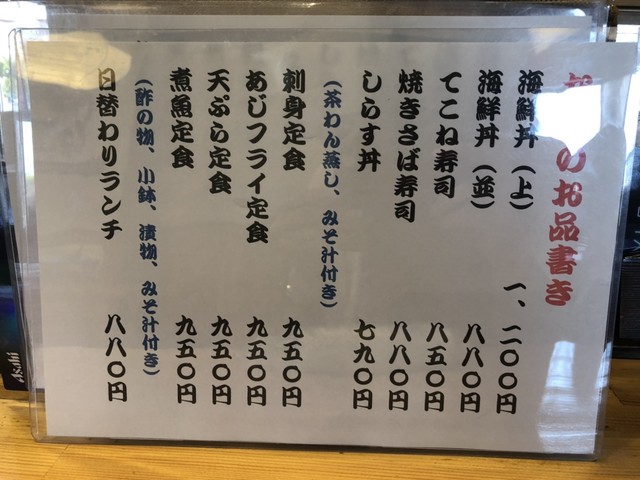 のお品書き
海鮮丼（上） 一、二〇〇円
海鮮丼（並） 八八〇円
てこね寿司 八五〇円
焼きさば寿司 八八〇円
しらす丼 七九〇円
（茶わん蒸し、みそ汁付き）
刺身定食 九五〇円
あじフライ定食 九五〇円
天ぷら定食 九五〇円
煮魚定食 九五〇円
（酢の物、小鉢、漬物、みそ汁付き）
日替わりランチ 八八〇円